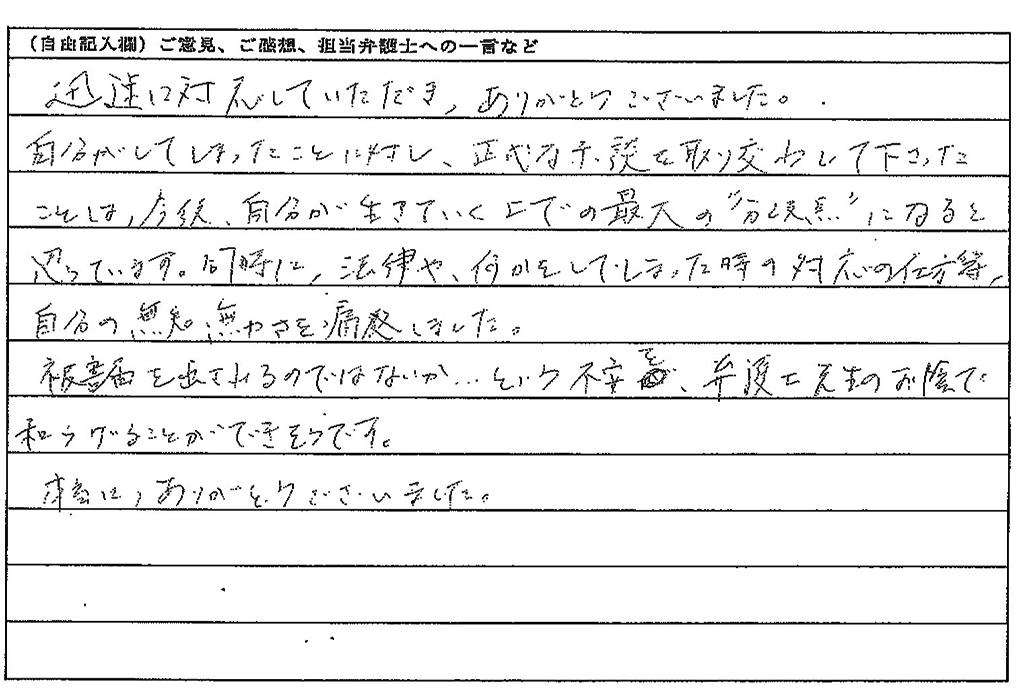 （自由記入欄）ご意見、ご感想、担当弁護士への一言など
迅速に対応していただき，ありがとうございました。
自分がしてしまったことに対し、正式な示談を取り交わして下さった
ことは，今後、自分が生きていく上での最大の“分岐点”になると
思っています。同時に，法律や、何かをしてしまった時の対応の仕方等，
自分の無知無力さを痛感しました。
被害届を出されるのではないか…という不安を、弁護士先生のお陰で
和らげることができそうです。
本当に，ありがとうございました。